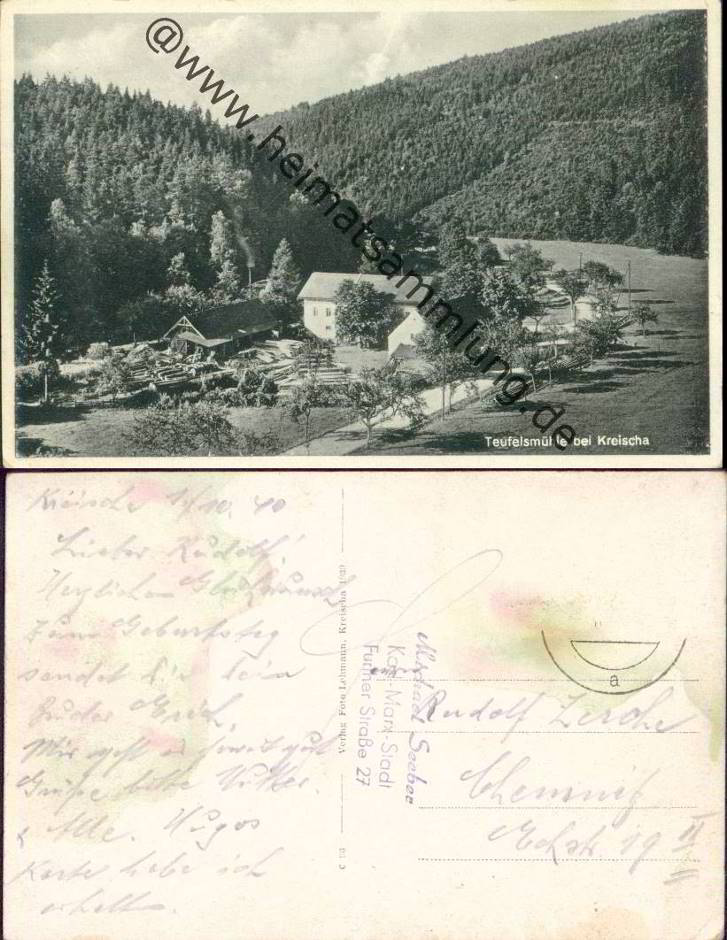 @www.heimatsammlung.de
Teufelsmühle bei Kreischa
Kreischa 10. 40
Lieber Rudolf!
Herzlichen Glückwunsch
Zum Geburtstag
sendet Dir dein
Bruder Erich.
Mir geht es soweit gut
Grüße bitte Mutter.
& Alle. Hugos
Karte habe ich
erhalten.
Verlag Foto Lehmann, Kreischa 1939
Michael Seeber
Karl-Marx-Stadt
Further Straße 27
a
Rudolf
Chemnitz
19 II